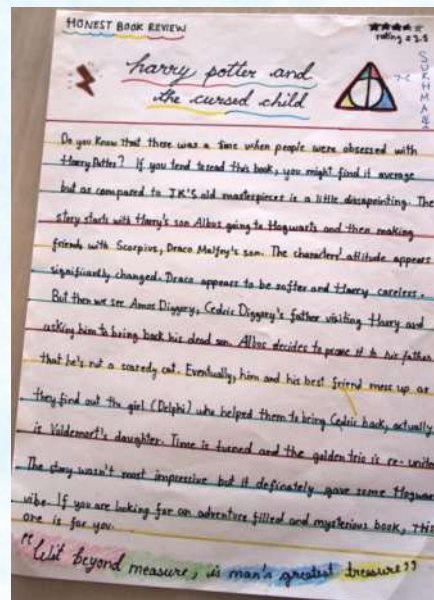 HONEST BOOK REVIEW
rating = 3.5
SUKHMANI
harry potter and
the cursed child
Do you know that there was a time when people were obsessed with
Harry Potter? If you tend to read this book, you might find it average
but as compared to J.K'S old masterpieces is a little dissapointing. The
story starts with Harry's son Albus going to Hogwarts and then making
friends with Scorpius, Draco Malfoy's son. The characters' attitude appears
significantly changed. Draco appears to be softer and Harry careless.
But then we see Amos Diggory, Cedric Diggory's father visiting Harry and
asking him to bring back his dead son. Albus decides to prove it to his father
that he's not a scaredy cat. Eventually, him and his best friend mess up as
they find out the girl (Delphi) who helped them to bring Cedric back, actually
is Voldemort's daughter. Time is turned and the golden trio is re-united
The story wasn't most impressive but it definately gave some Hogwarts
vibe. If you are looking for an adventure filled and mysterious book, this
one is for you.
"Wit beyond measure, is man's greatest treasure"